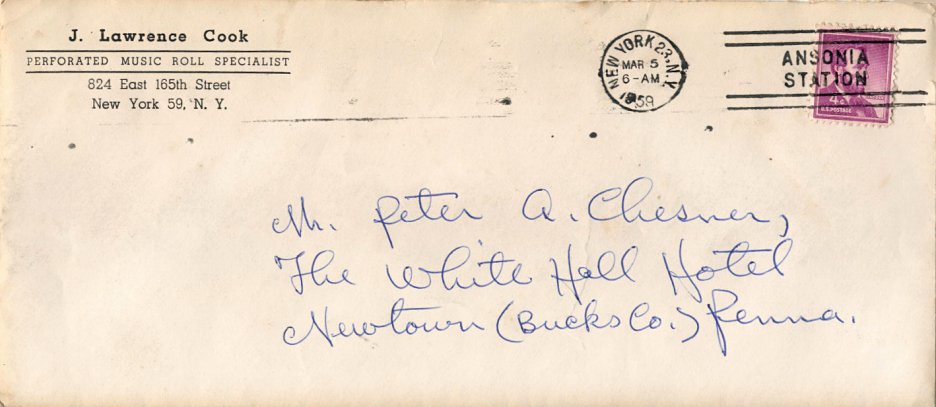 J. Lawrence Cook
PERFORATED MUSIC ROLL SPECIALIST
824 East 165th Street
New York 59, N. Y.
NEW YORK 23, N.Y.
MAR 5
6-AM
1959
ANSONIA
STATION
4¢
U.S. POSTAGE
Mr. Peter A. Chesner,
The White Hall Hotel
Newtown (Bucks Co.) Penna.